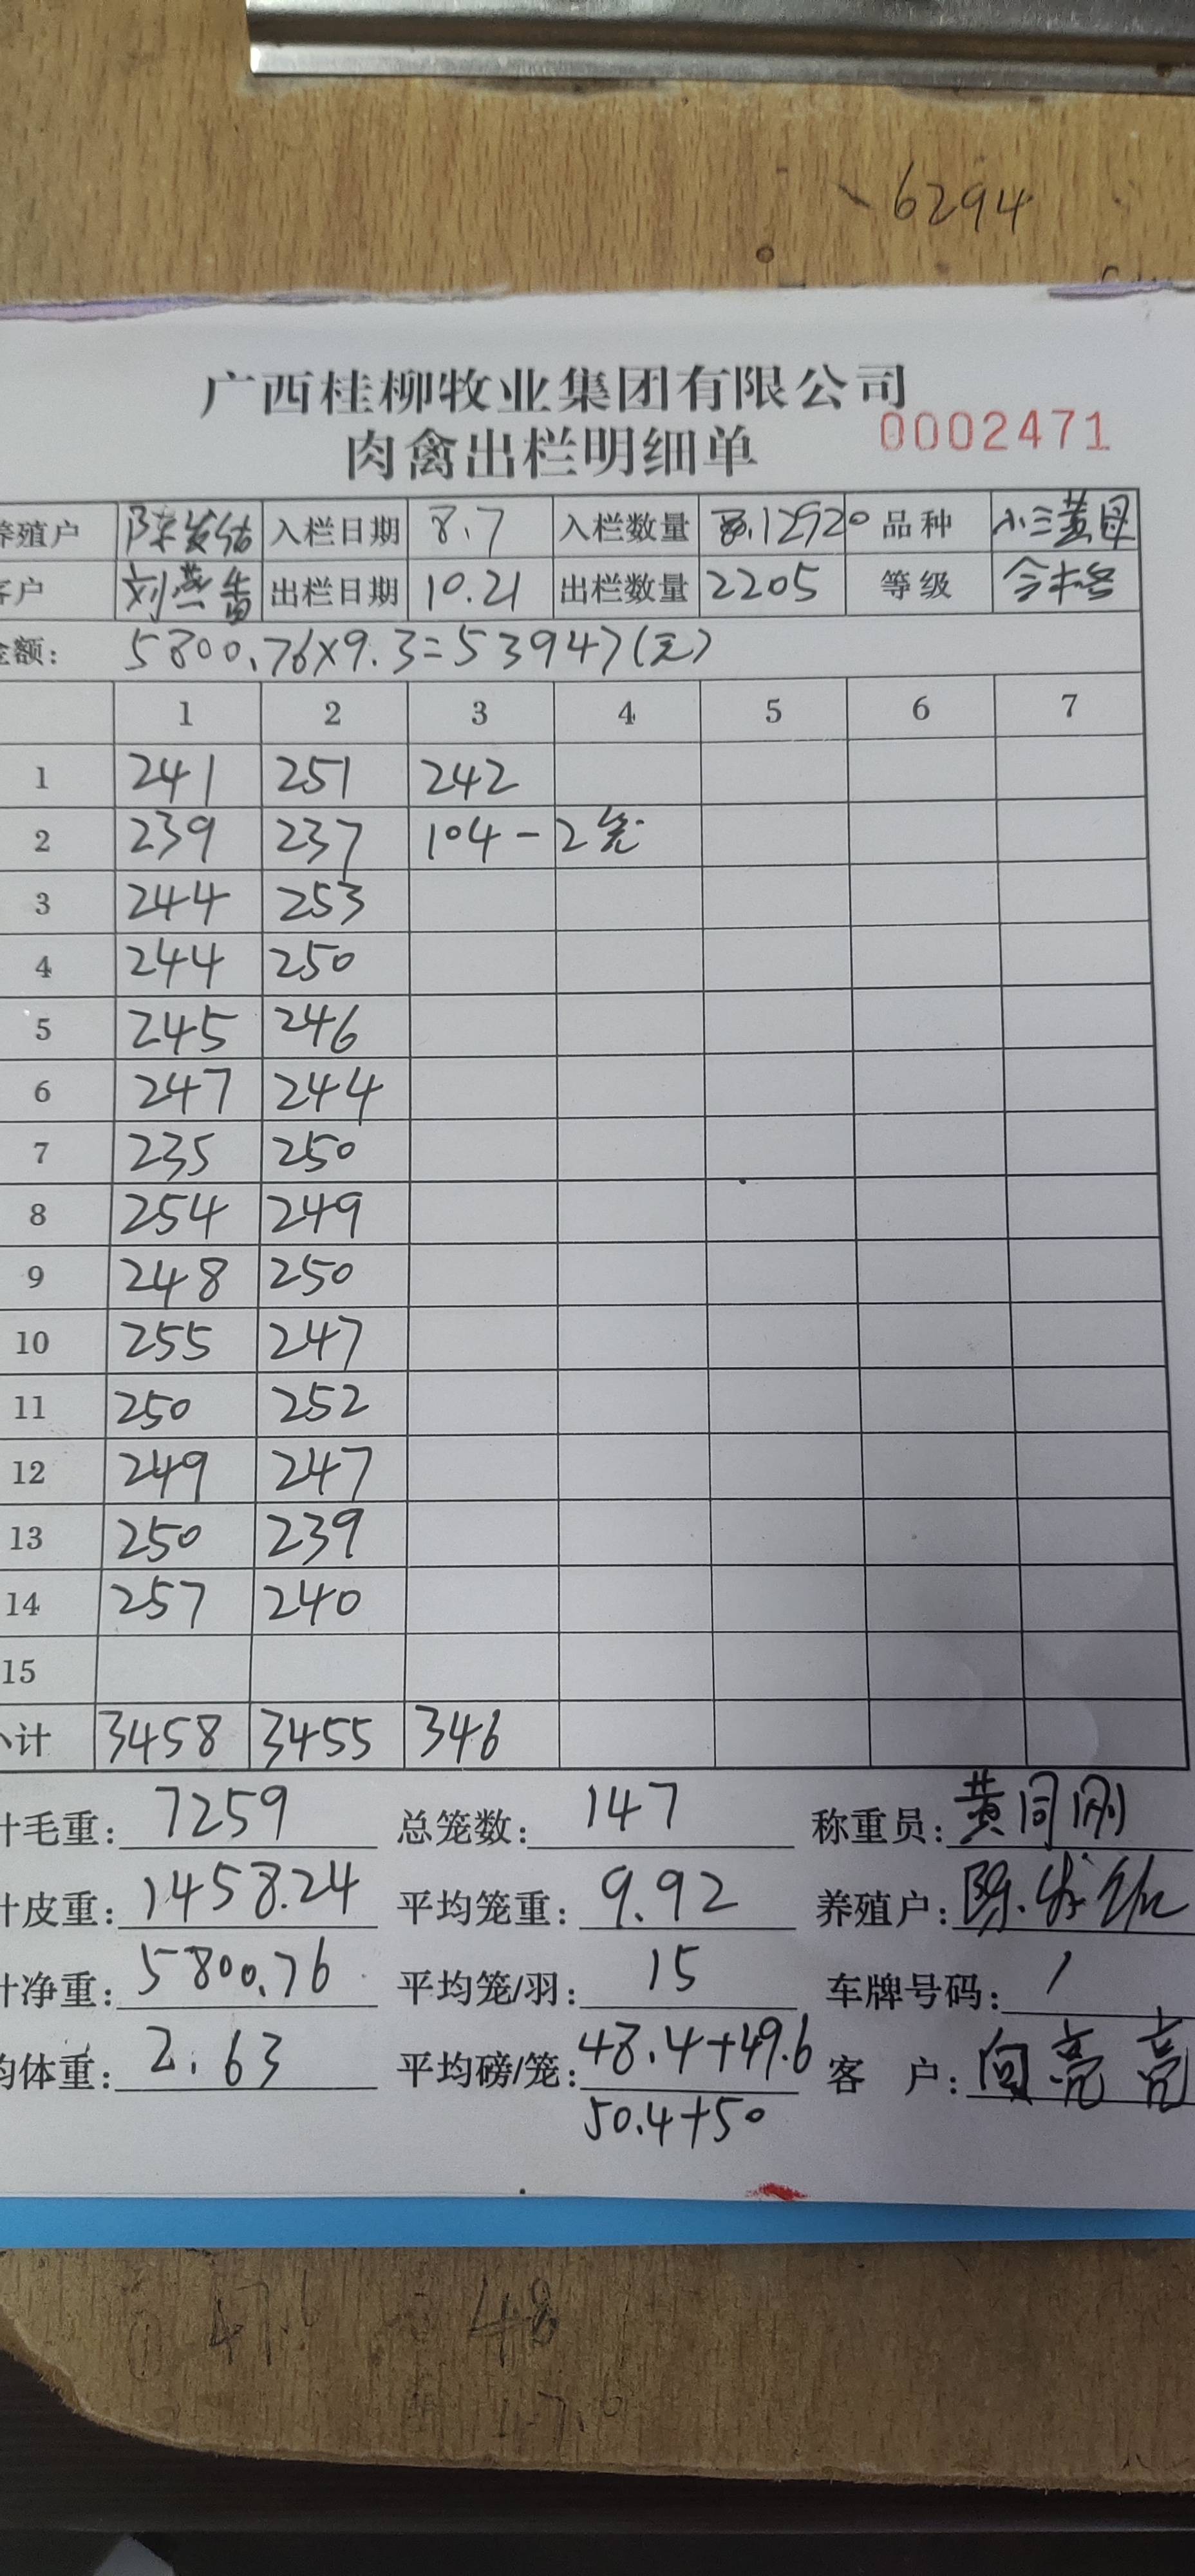 6294
广西桂柳牧业集团有限公司
肉禽出栏明细单 0002471
养殖户 陈发佑 入栏日期 8.7 入栏数量 12920 品种 小三黄母
客户 刘燕香 出栏日期 10.21 出栏数量 2205 等级 合格
金额: 5800.76×9.3=53947(元)
1 2 3 4 5 6 7
1 241 251 242
2 239 237 104-2笼
3 244 253
4 244 250
5 245 246
6 247 244
7 235 250
8 254 249
9 248 250
10 255 247
11 250 252
12 249 247
13 250 239
14 257 240
15
小计 3458 3455 346
计毛重: 7259 总笼数: 147 称重员: 黄同刚
计皮重: 1458.24 平均笼重: 9.92 养殖户: 陈发佑
计净重: 5800.76 平均笼/羽: 15 车牌号码: /
均体重: 2.63 平均磅/笼: 48.4+49.6 客 户: 向亮亮
50.4+50
48